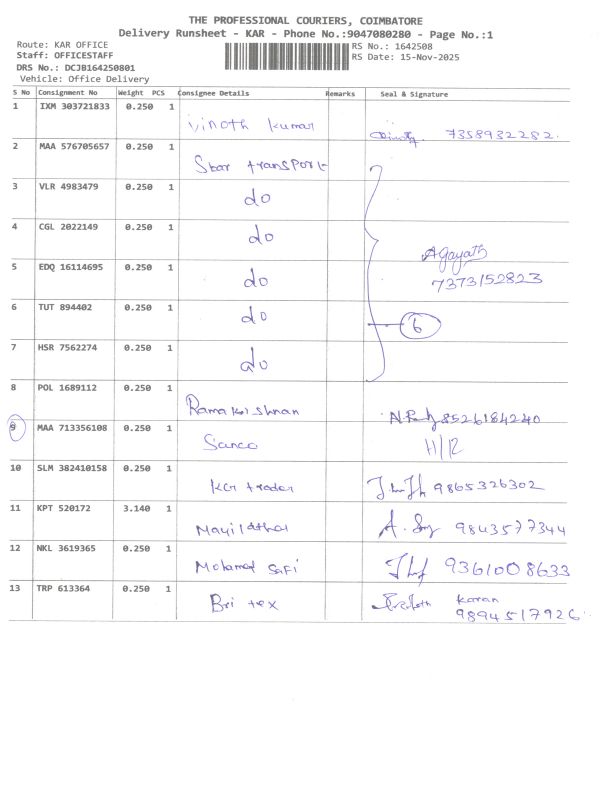 THE PROFESSIONAL COURIERS, COIMBATORE
Delivery Runsheet - KAR - Phone No.:9047080280 - Page No.:1
Route: KAR OFFICE
RS No.: 1642508
Staff: OFFICESTAFF
RS Date: 15-Nov-2025
DRS No.: DCJB164250801
Vehicle: Office Delivery
S No Consignment No Weight PCS Consignee Details Remarks Seal & Signature
1 IXM 303721833 0.250 1 Vinoth kumar 7358932282.
2 MAA 576705657 0.250 1 Star transport
3 VLR 4983479 0.250 1 do
4 CGL 2022149 0.250 1 do
5 EDQ 16114695 0.250 1 do
7373152823
6 TUT 894402 0.250 1 do
6
7 HSR 7562274 0.250 1 do
8 POL 1689112 0.250 1 Ramakrishnan 8526184240
9 MAA 713356108 0.250 1 Sanco
10 SLM 382410158 0.250 1 trader 9865326302
11 KPT 520172 3.140 1 9843577344
12 NKL 3619365 0.250 1 Mohamed Safi 9361008633
13 TRP 613364 0.250 1 Bri tex karan
9894517926